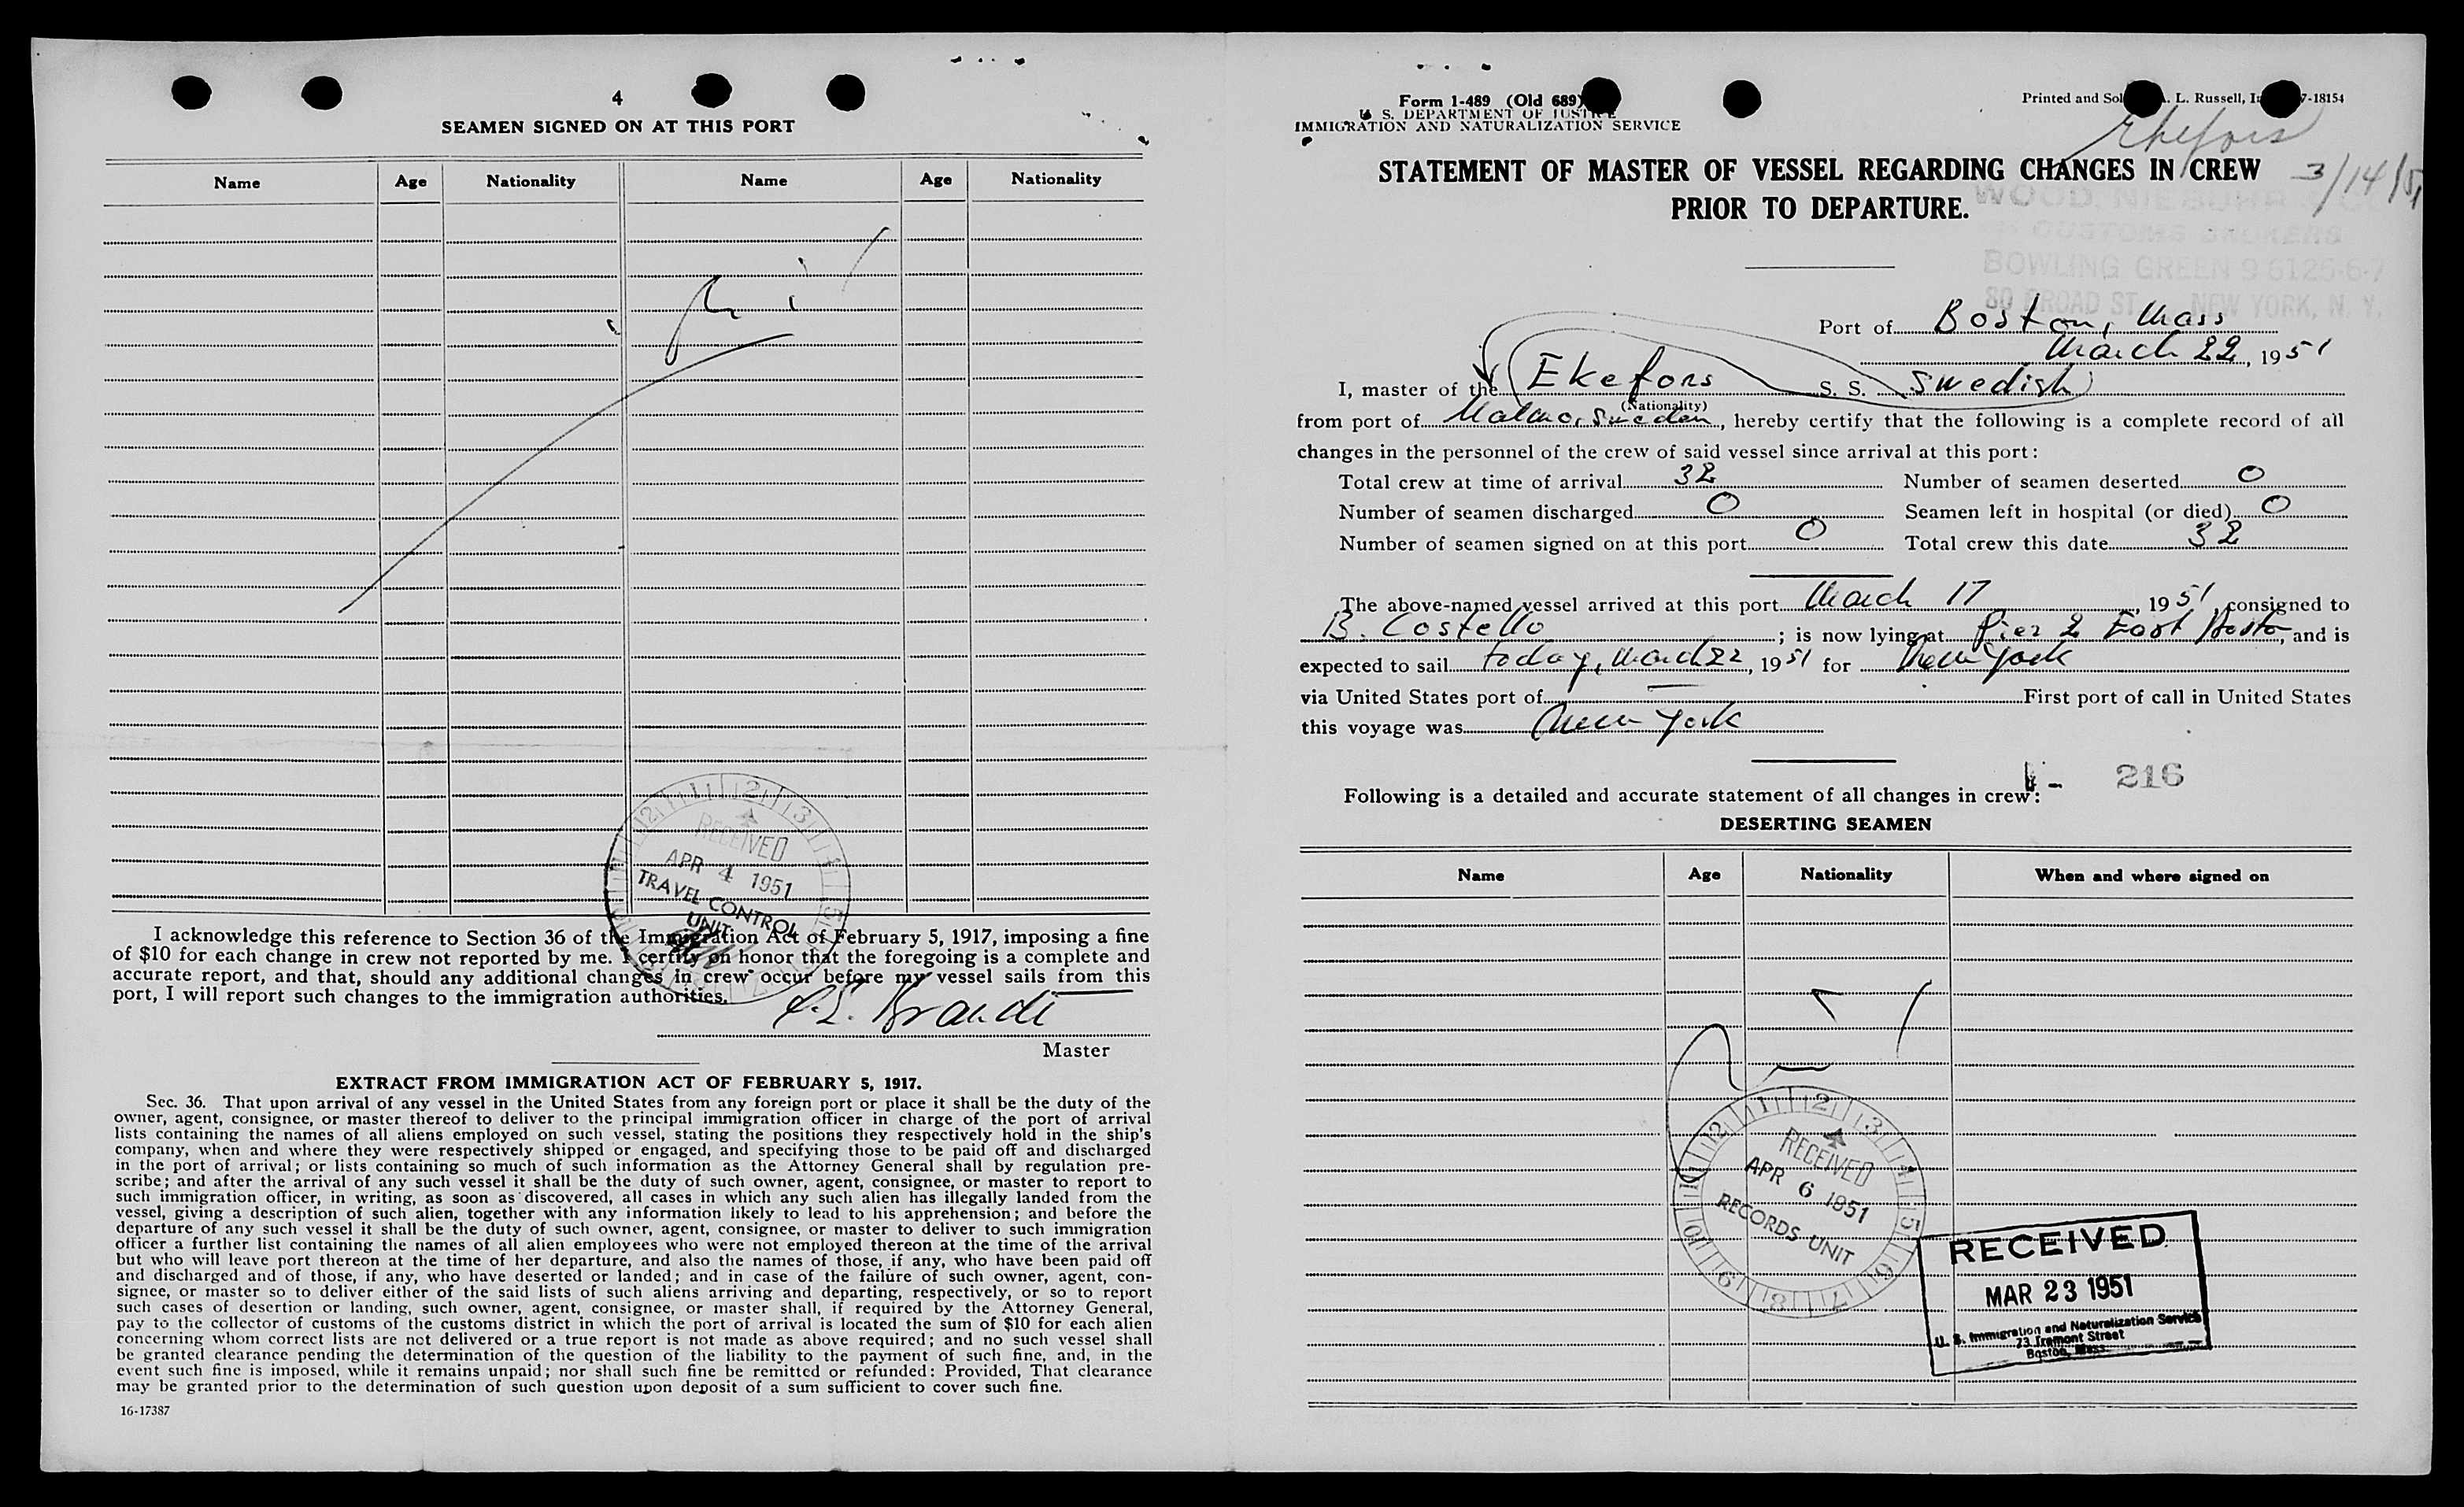 4
SEAMEN SIGNED ON AT THIS PORT
Name Age Nationality Name Age Nationality
RECEIVED
APR 4 1951
TRAVEL CONTROL
UNIT
I acknowledge this reference to Section 36 of the Immigration Act of February 5, 1917, imposing a fine
of $10 for each change in crew not reported by me. I certify on honor that the foregoing is a complete and
accurate report, and that, should any additional changes in crew occur before my vessel sails from this
port, I will report such changes to the immigration authorities.
Brandt
Master
EXTRACT FROM IMMIGRATION ACT OF FEBRUARY 5, 1917.
Sec. 36. That upon arrival of any vessel in the United States from any foreign port or place it shall be the duty of the
owner, agent, consignee, or master thereof to deliver to the principal immigration officer in charge of the port of arrival
lists containing the names of all aliens employed on such vessel, stating the positions they respectively hold in the ship's
company, when and where they were respectively shipped or engaged, and specifying those to be paid off and discharged
in the port of arrival; or lists containing so much of such information as the Attorney General shall by regulation pre-
scribe; and after the arrival of any such vessel it shall be the duty of such owner, agent, consignee, or master to report to
such immigration officer, in writing, as soon as discovered, all cases in which any such alien has illegally landed from the
vessel, giving a description of such alien, together with any information likely to lead to his apprehension; and before the
departure of any such vessel it shall be the duty of such owner, agent, consignee, or master to deliver to such immigration
officer a further list containing the names of all alien employees who were not employed thereon at the time of the arrival
but who will leave port thereon at the time of her departure, and also the names of those, if any, who have been paid off
and discharged and of those, if any, who have deserted or landed; and in case of the failure of such owner, agent, con-
signee, or master so to deliver either of the said lists of such aliens arriving and departing, respectively, or so to report
such cases of desertion or landing, such owner, agent, consignee, or master shall, if required by the Attorney General,
pay to the collector of customs of the customs district in which the port of arrival is located the sum of $10 for each alien
concerning whom correct lists are not delivered or a true report is not made as above required; and no such vessel shall
be granted clearance pending the determination of the question of the liability to the payment of such fine, and, in the
event such fine is imposed, while it remains unpaid; nor shall such fine be remitted or refunded: Provided, That clearance
may be granted prior to the determination of such question upon deposit of a sum sufficient to cover such fine.
16-17387
Form 1-489 (Old 689)
U. S. DEPARTMENT OF JUSTICE
IMMIGRATION AND NATURALIZATION SERVICE
Printed and L. Russell, 7-18154
3/14/51
STATEMENT OF MASTER OF VESSEL REGARDING CHANGES IN CREW
PRIOR TO DEPARTURE.
WOOD, NIEBUHR & CO
CUSTOMS BROKERS
BOWLING GREEN 9 6125-6-7
80 BROAD ST. NEW YORK, N. Y.
Port of Boston, Mass
March 22, 1951
I, master of the Ekefors S. S. Swedish
(Nationality)
from port of Malmo, Sweden, hereby certify that the following is a complete record of all
changes in the personnel of the crew of said vessel since arrival at this port:
Total crew at time of arrival 32 Number of seamen deserted 0
Number of seamen discharged 0 Seamen left in hospital (or died) 0
Number of seamen signed on at this port 0 Total crew this date 32
The above-named vessel arrived at this port March 17, 1951, consigned to
B. Costello; is now lying at Pier 2 East Boston, and is
expected to sail today, March 22, 1951 for New York
via United States port of — First port of call in United States
this voyage was New York
216
Following is a detailed and accurate statement of all changes in crew:
DESERTING SEAMEN
Name Age Nationality When and where signed on
RECEIVED
APR 6 1951
RECORDS UNIT
RECEIVED
MAR 23 1951
U. S. Immigration and Naturalization Service
73 Tremont Street
Boston, Mass